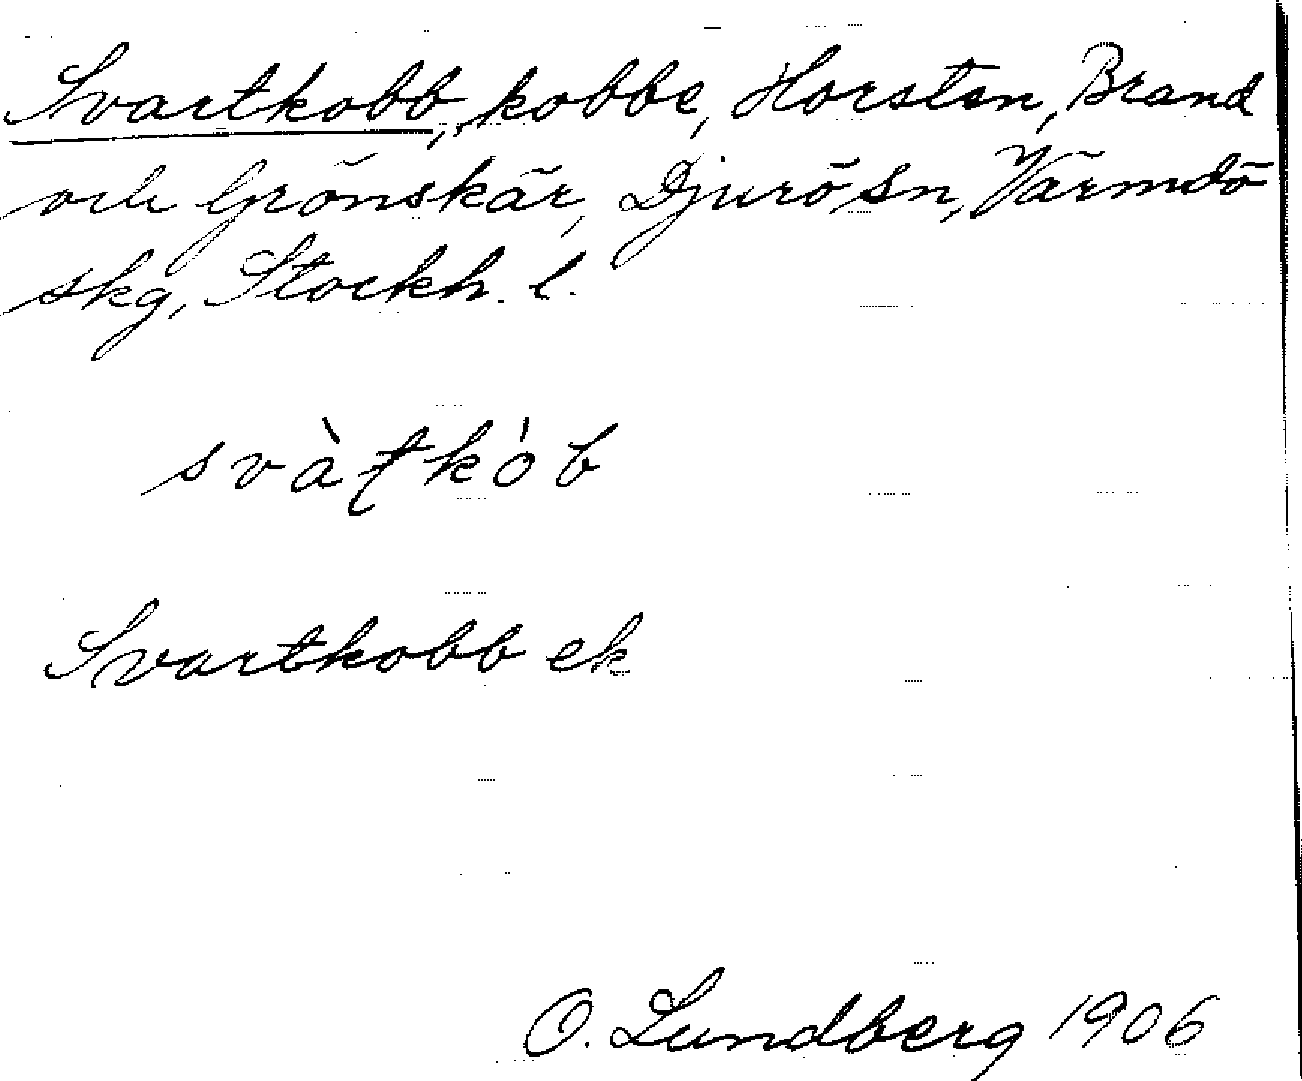 Svartkobb, kobbe, Horsten, Brand
och Grönskär, Djurö sn, Värmdö
skg, Stockh. l.
svàƭkób
Svartkobb ek
O. Lundberg 1906